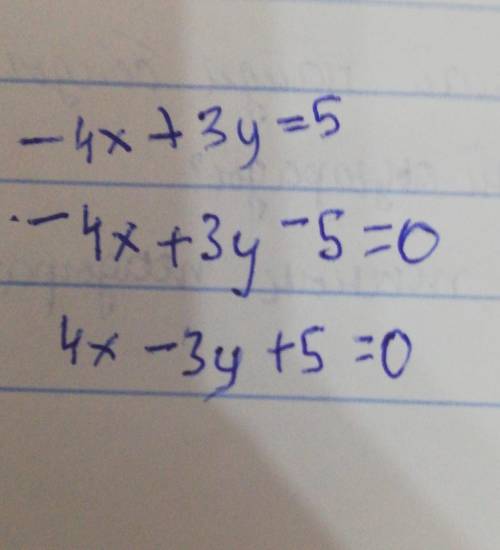 -4x + 3y = 5
-4x + 3y - 5 = 0
4x - 3y + 5 = 0